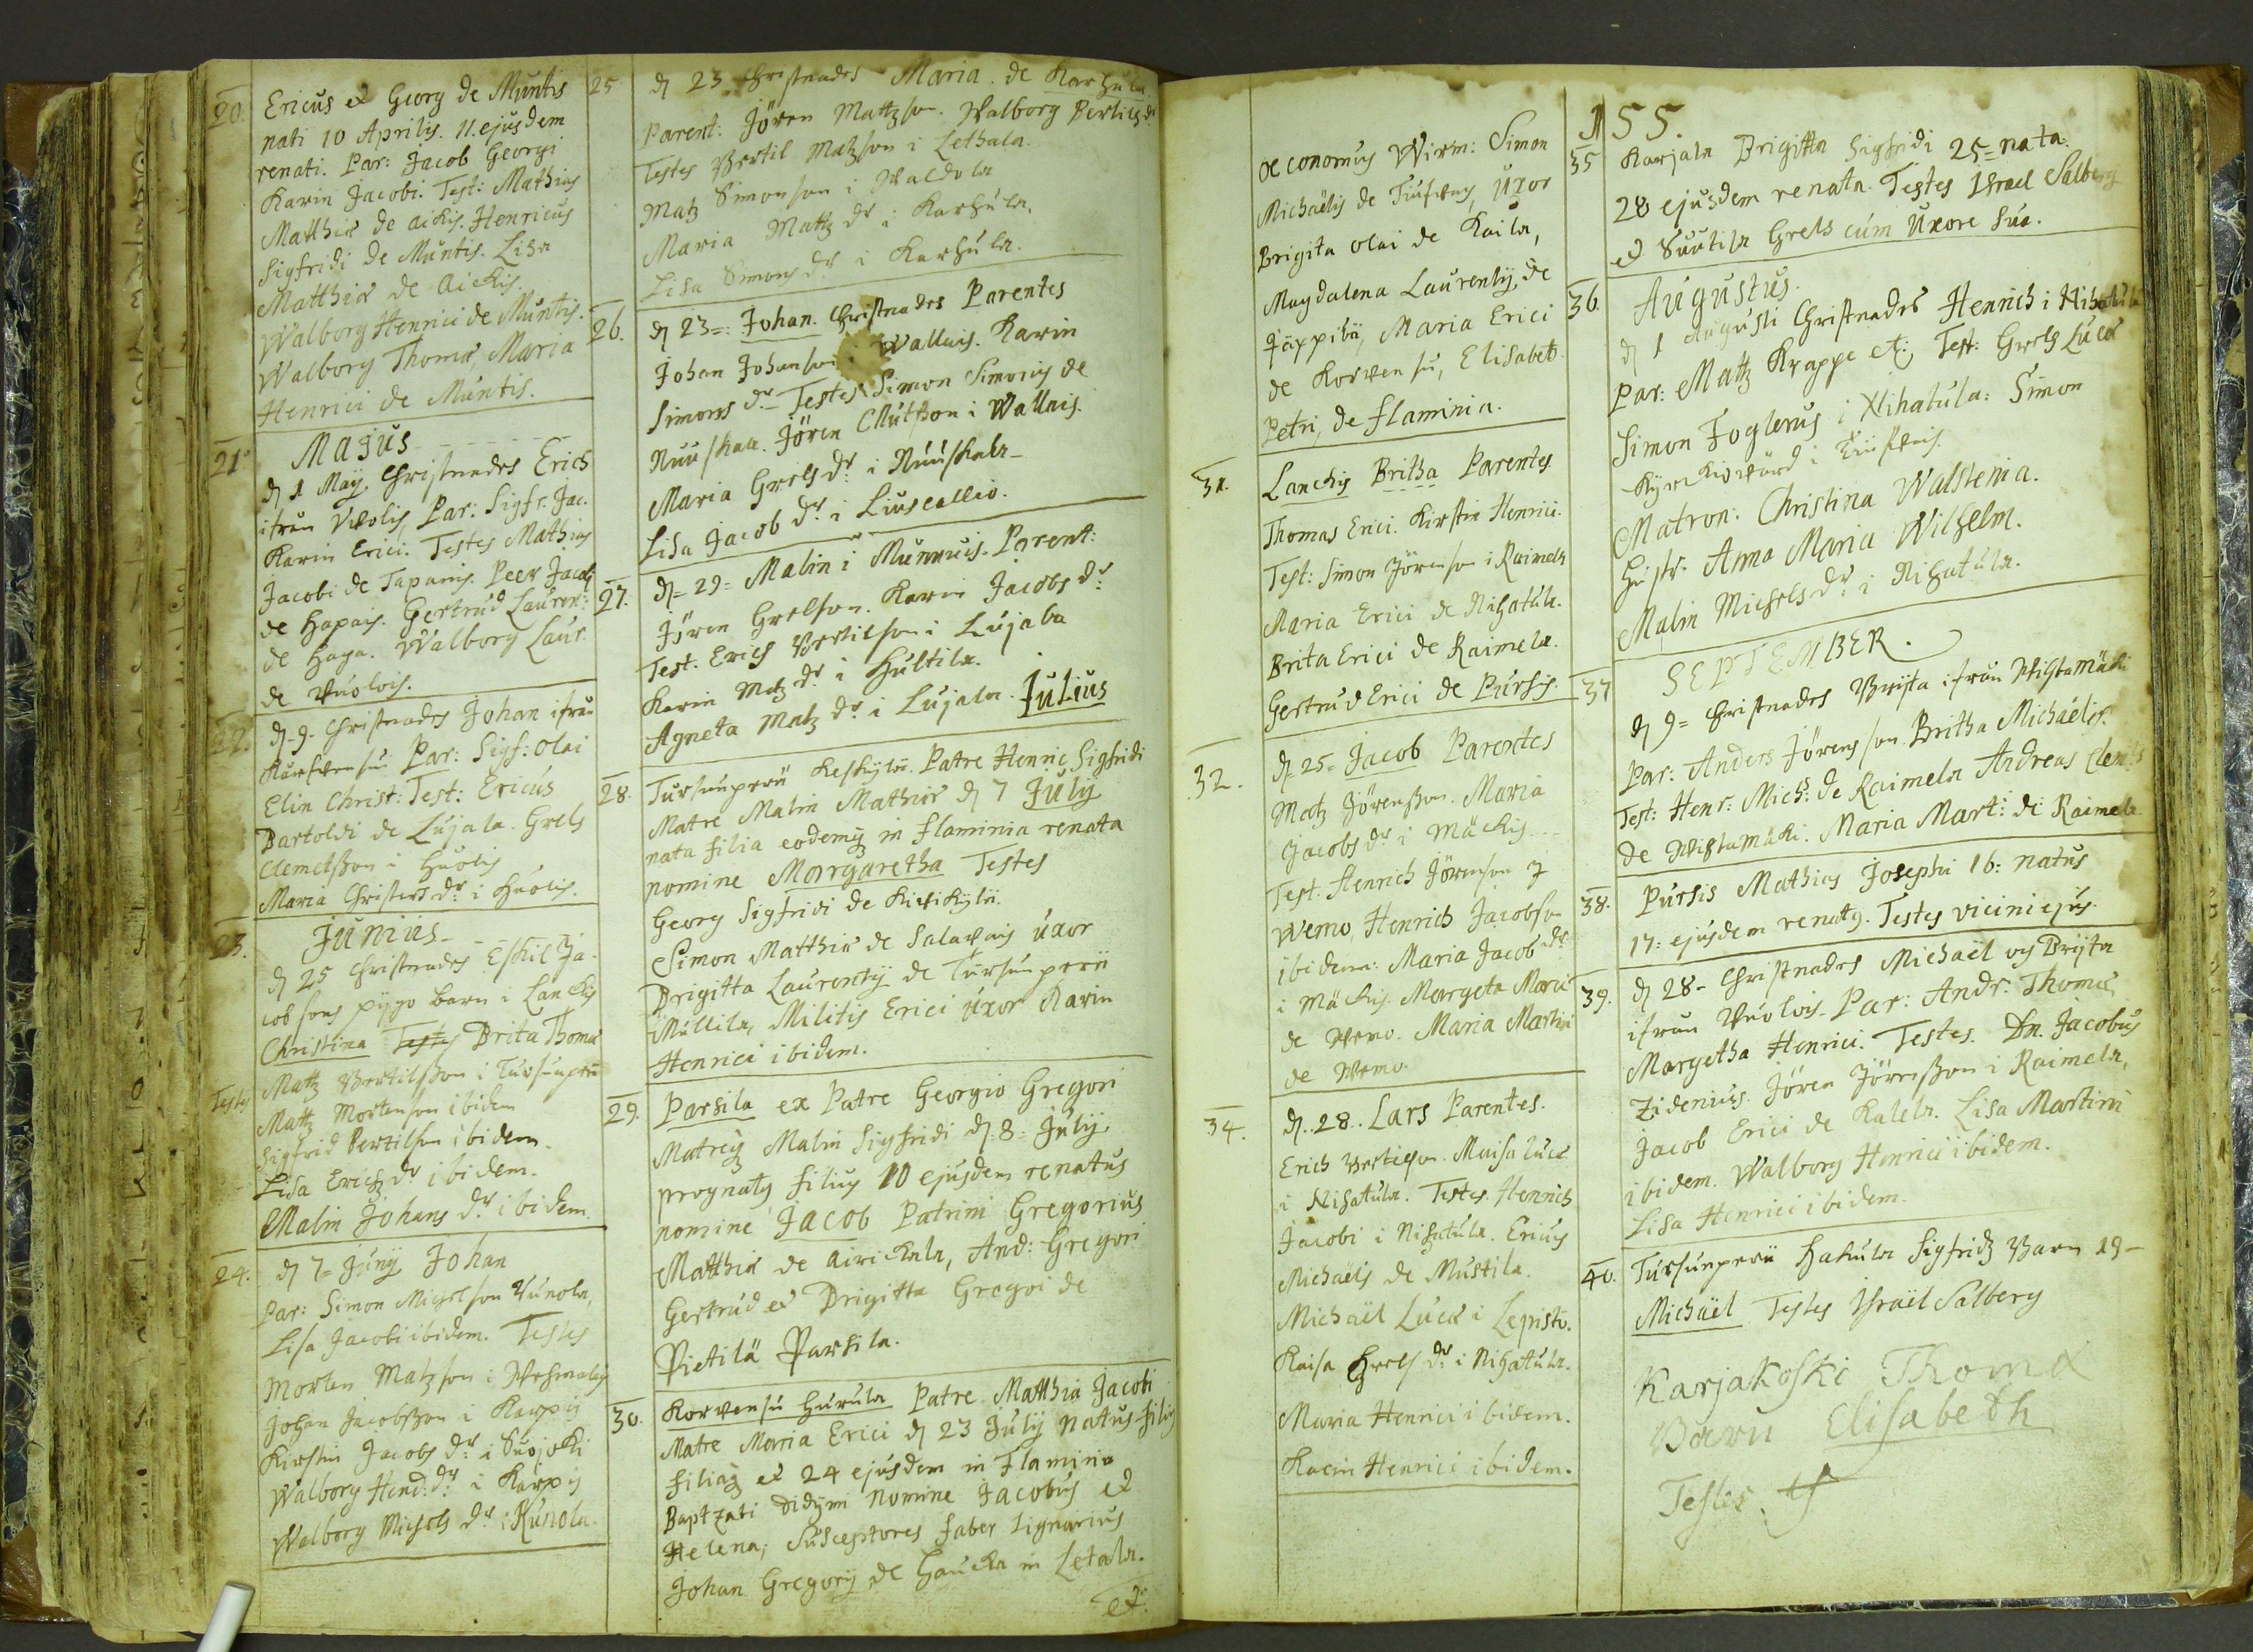 20. Ericus et Georg de Muntis
nati 10 Aprilis. 11. ejusdem
renati. Par: Jacob Georgi
Karin Jacobi. Test: Mathias
Matthiæ de Aickis. Henricus
Sigfridi de Muntis. Lisa
Matthiæ de Aickis.
Walborg Henrici de Muntis.
Walborg Thomæ, Maria
Henrici de Muntis.
Majus
21. d 1 Maÿ. Christnades Erich
ifrån Par: Sigfr. Jac.
Karin Erici. Testes Mathias
Jacobi de Tapanis. Peer Jacobj
de Hapais. Gertrud Lauren:
de Haga. Walborg Laur.
de Vuolois.
22. d. 9. Christnades Johan ifrån
Par: Sigf: Olai
Elin Christ: Test: Ericus
Bartoldi de Lujala. Grels
Clemetsson i Huolis
Maria Christers dr. i Huolis.
Junius
23. d 25 Christnades Eskil Ja-
cobsons barn i Lanckis
Christina Testes Brita Thomæ
Testes Mattz Bertilsson i Tursunperä
Mattz Mortenson ibidem
Sigfrid Bertilson ibidem.
Lisa Erichz dr ibidem.
Malin Johans dr. ibidem.
24. d 7= Junÿ Johan
Par: Simon Michelson
Lisa Jacobi ibidem. Testes
Morten Matzson i
Johan Jacobsson i Karpis
Kirstin Jacobs dr: i Suojoki
Walborg Hend: dr i Karpis
Walborg Michels dr i Kunola.
25 d 23 Christnades Maria de Karhula.
Parent: Jören Mattzson. Walborg Bertils dr
Testes Bertil Matzson i Lethala.
Matz Simonson i Waldola
Maria Mattz dr i Karhula.
Lisa Simons dr. i Karhula.
26. d 23=: Johan. Christnades Parentes
Johan Johanson i Wallais. Karin
Simons dr. Testes Simon Simonis de
Nuuskala. Jören Clutson i Wallais.
Maria Grels dr: i Nuuskala
Lisa Jacob dr. i Liuscallio.
27. d= 29= Malin i Munnuis. Parent:
Jören Grelson. Karin Jacobs dr:
Test. Erich Bertilson i Lujala
Karin Matz dr: i Hultila.
Agneta Matz dr: i Lujala. Julius
28. Tursunperä Keskÿlä. Patre Henric Sigfridi
Matre Malin Mathiæ d 7 Julÿ
nata filia eodemq in Flaminia renata
nomine Margaretha Testes
Georg Sigfridi de Kivikÿlä.
Simon Matthiæ de Salavais uxor
Brigitta Laurentÿ de Tursunperä
Mullila, Militis Erici uxor Karin
Henrici ibidem.
29. Parsila ex Patre Georgio Gregori
Matreq Malin Sigfridi d. 8= Julÿ
prognatq filius 10 ejusdem renatus
nomine Jacob Patrini Gregorius
Matthiæ de Airickala, And: Gregori
Gertrud et Brigitta Gregori de
Pietilä Parsila.
30. Korvensu Hurula Patre Matthia Jacobi
Matre Maria Erici d 23 Julÿ natus filiq
filiaq et 24 ejusdem in Flaminia
Baptzati didÿmi nomine Jacobus et
Helena; Susceptores faber lignarius
Johan Gregorÿ de Haucka in Letala.
et.
155.
Oeconomus Wirm: Simon
Michaëlis de uxor
Brigita Olai de Kaila,
Magdalena Laurentÿ, de
Jäppilä, Maria Erici
de Korvensu, Elisabet
Petri, de Flaminia.
31. Lanckis Britha Parentes
Thomas Erici. Kirstin Henrici.
Test: Simon Jörenson i Raimela
Maria Erici de Nihatula.
Brita Erici de Raimela.
Gertrud Erici de Pursis.
32. d. 25= Jacob Parentes
Matz Jörensson. Maria
Jacobs dr i Mäckis.
Test. Henrich Jörenson i
Wemo, Henrich Jacobson
ibidem: Maria Jacob dr
i Mäckis. Margeta
de Wemo. Maria Martini
de Wemo.
34. d. 28.. Lars Parentes.
Erich Bertilson. Maisa Lucæ
i Nihatula. Testes. Henrich
Jacobi i Nihatula. Ericus
Michaëls de Mustila.
Michaël Lucæ i Lepistö.
Kaisa Grels dr: i Nihatula.
Maria Henrici ibidem.
Karin Henrici ibidem.
35 Karjala Brigitta Sigfridi 25= nata.
28 ejusdem renata. Testes Israel Salberg
et Suutila Grels cum Uxore sua.
Augustus.
36. d 1 Augusti Christnades Henrich i Nihatula
Par: Mattz Krappe et; Test: Grels Lucæ
Simon Foglerus i Nihatula: Simon
Matron: Christina Walstenia.
Hustr. Anna Maria Wilhelm.
Malin Michels dr: i Nihatula.
SEPTEMBER.
37 d 9= Christnades Brijta ifrån
Par: Anders Jörensson. Britha Michaëlis.
Test: Henr: Mich: de Raimela Andreas
de Maria Mart: de Raimela
38. Pursis Mathias Josephi 16: natus
17: ejusdem renatq. Testes vicini ejus.
39. d 28- Christnades Michaël och Brijta
ifrån Vuolois. Par: Andr: Thomæ
Margetha Henrici. Testes. Dn. Jacobus
Zidenius. Jören Jörensson i Raimela,
Jacob Erici de Kalela. Lisa Martini
ibidem. Walborg Henrici ibidem.
Lisa Henrici ibidem.
40. Tursunperä Hakula Sigfridz Barn 19-
Michaël Testes Israël Salberg
Karjakoski Thomæ
Barn Elisabeth
Testes.